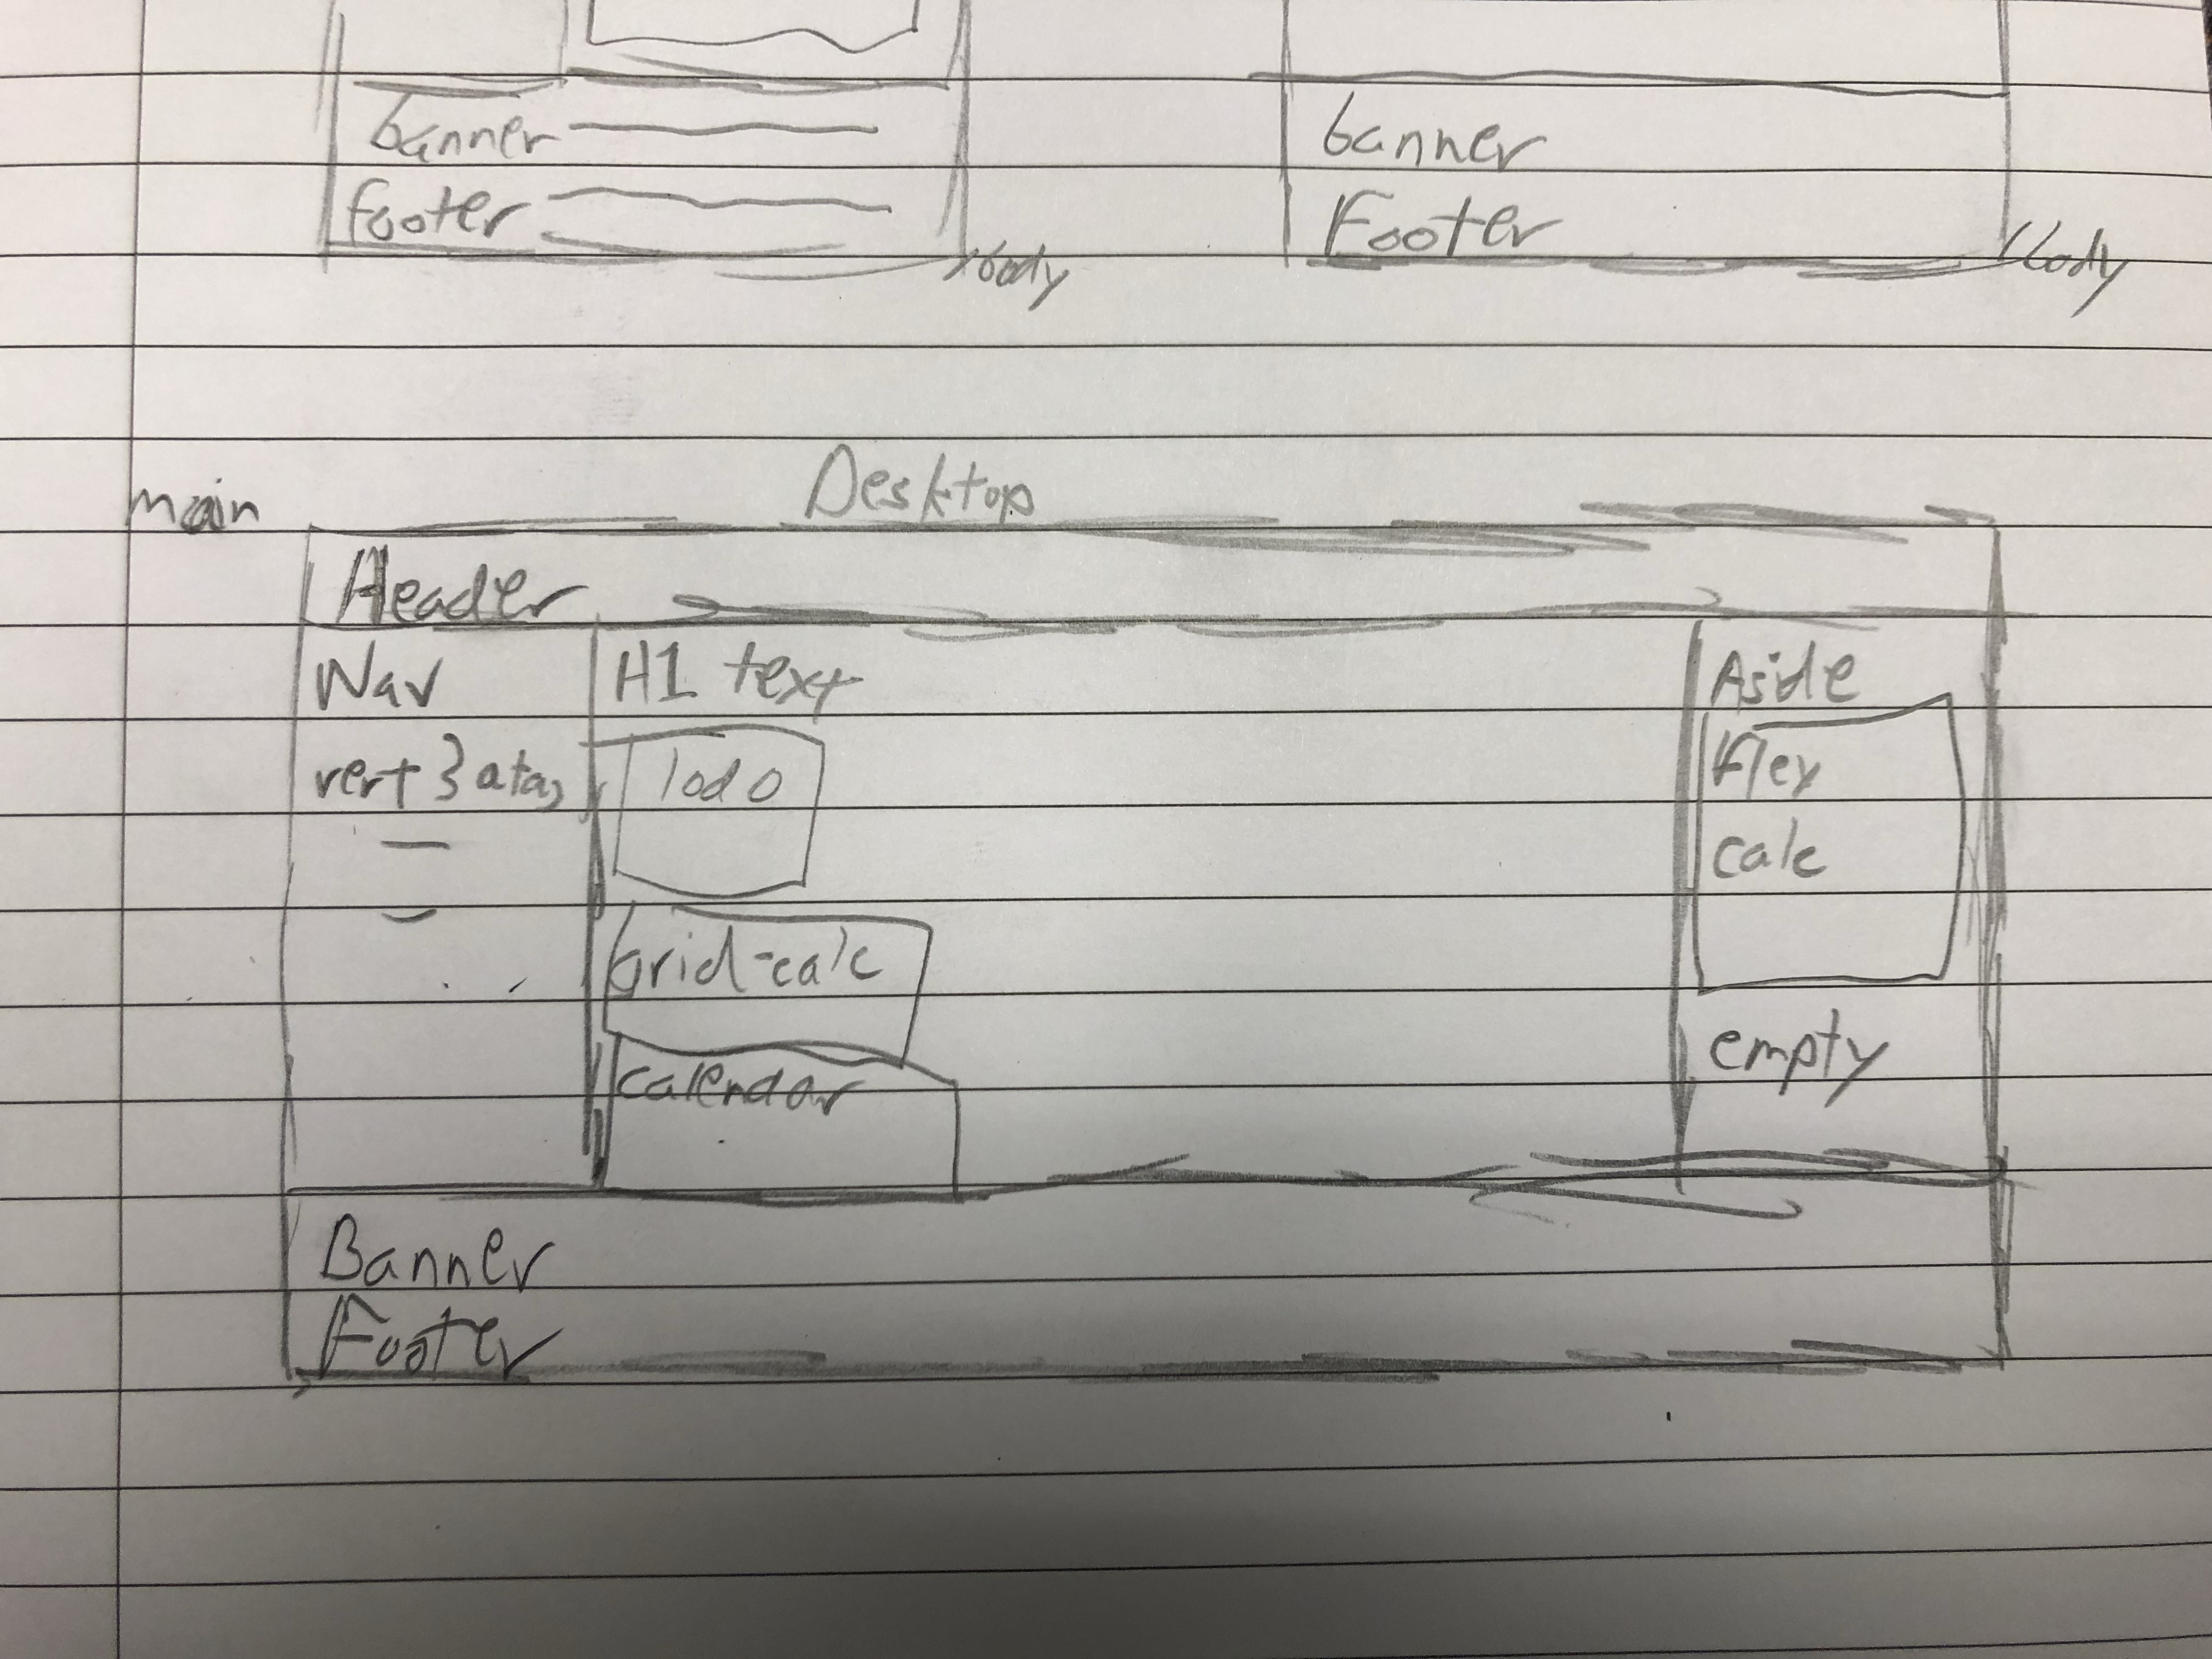 banner
footer
body
banner
Footer
body
main
Desktop
Header
Nav
vert 3 atag
H1 text
Todo
Grid-calc
calendar
Aside
Flex
calc
empty
Banner
Footer